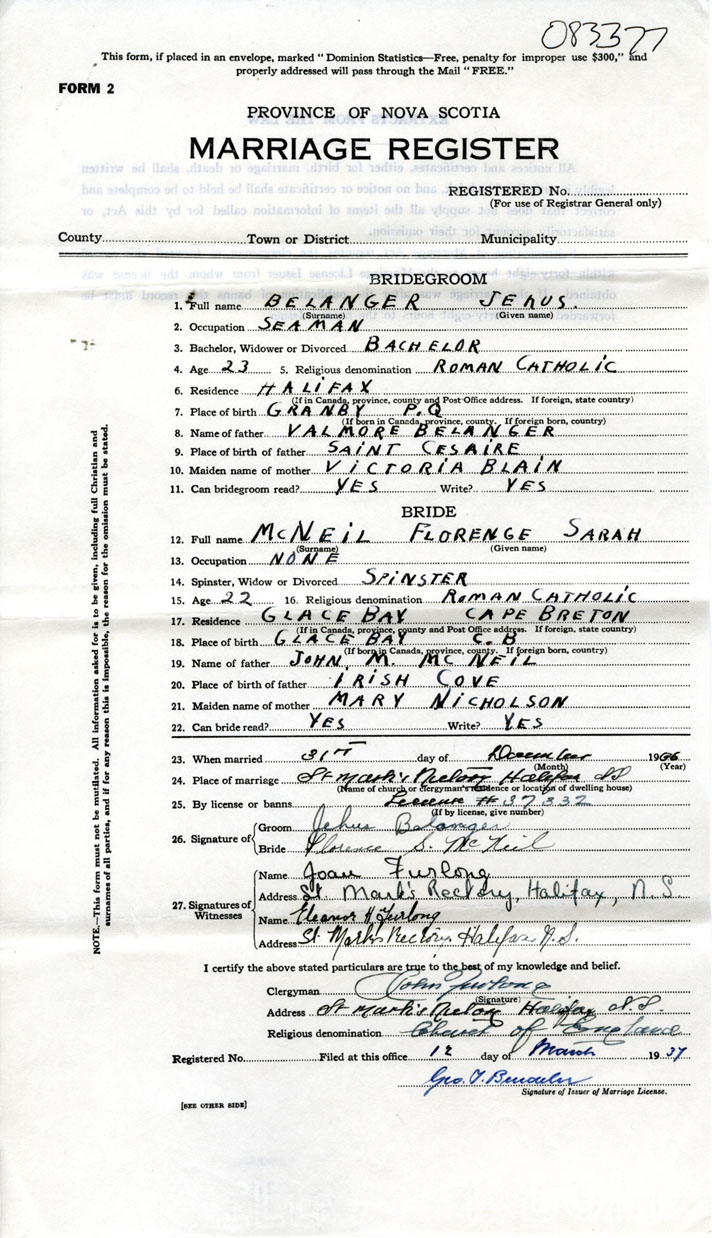 083377
This form, if placed in an envelope, marked "Dominion Statistics—Free, penalty for improper use $300," and
properly addressed will pass through the Mail "FREE."
FORM 2
PROVINCE OF NOVA SCOTIA
MARRIAGE REGISTER
REGISTERED No.
(For use of Registrar General only)
County Town or District Municipality
BRIDEGROOM
1. Full name BELANGER JEHUS.
(Surname) (Given name)
2. Occupation SEAMAN
3. Bachelor, Widower or Divorced BACHELOR
4. Age 23 5. Religious denomination ROMAN CATHOLIC
6. Residence HALIFAX
(If in Canada, province, county and Post Office address. If foreign, state country)
7. Place of birth GRANBY P.Q
(If born in Canada, province, county. If foreign born, country)
8. Name of father VALMORE BELANGER
9. Place of birth of father SAINT CESAIRE
10. Maiden name of mother VICTORIA BLAIN
11. Can bridegroom read? YES Write? YES
BRIDE
12. Full name McNEIL FLORENGE SARAH
(Surname) (Given name)
13. Occupation NONE
14. Spinster, Widow or Divorced SPINSTER
15. Age 22 16. Religious denomination ROMAN CATHOLIC
17. Residence GLACE BAY CAPE BRETON
(If in Canada, province, county and Post Office address. If foreign, state country)
18. Place of birth GLACE BAY C.B
(If born in Canada, province, county. If foreign born, country)
19. Name of father JOHN. M. MCNEIL
20. Place of birth of father IRISH COVE
21. Maiden name of mother MARY NICHOLSON
22. Can bride read? YES Write? YES
23. When married 31st day of December 1936
(Month) (Year)
24. Place of marriage St Mark's Rectory Halifax NS
(Name of church or clergyman's residence or location of dwelling house)
25. By license or banns License # 37332
(If by license, give number)
26. Signature of Groom Jehus Belanger
Bride Florence S. McNeil
27. Signatures of Witnesses
Name Joan Furlong
Address St. Mark's Rectory, Halifax, N.S
Name Eleanor H Furlong
Address St. Marks Rectory Halifax N.S.
I certify the above stated particulars are true to the best of my knowledge and belief.
Clergyman John Furlong
(Signature)
Address St Mark's Rectory Halifax N.S.
Religious denomination Church of England
Registered No. Filed at this office 12 day of March 1937
Geo. T.
Signature of Issuer of Marriage License.
[SEE OTHER SIDE]
NOTE.—This form must not be mutilated. All information asked for is to be given, including full Christian and
surnames of all parties, and if for any reason this is impossible, the reason for the omission must be stated.